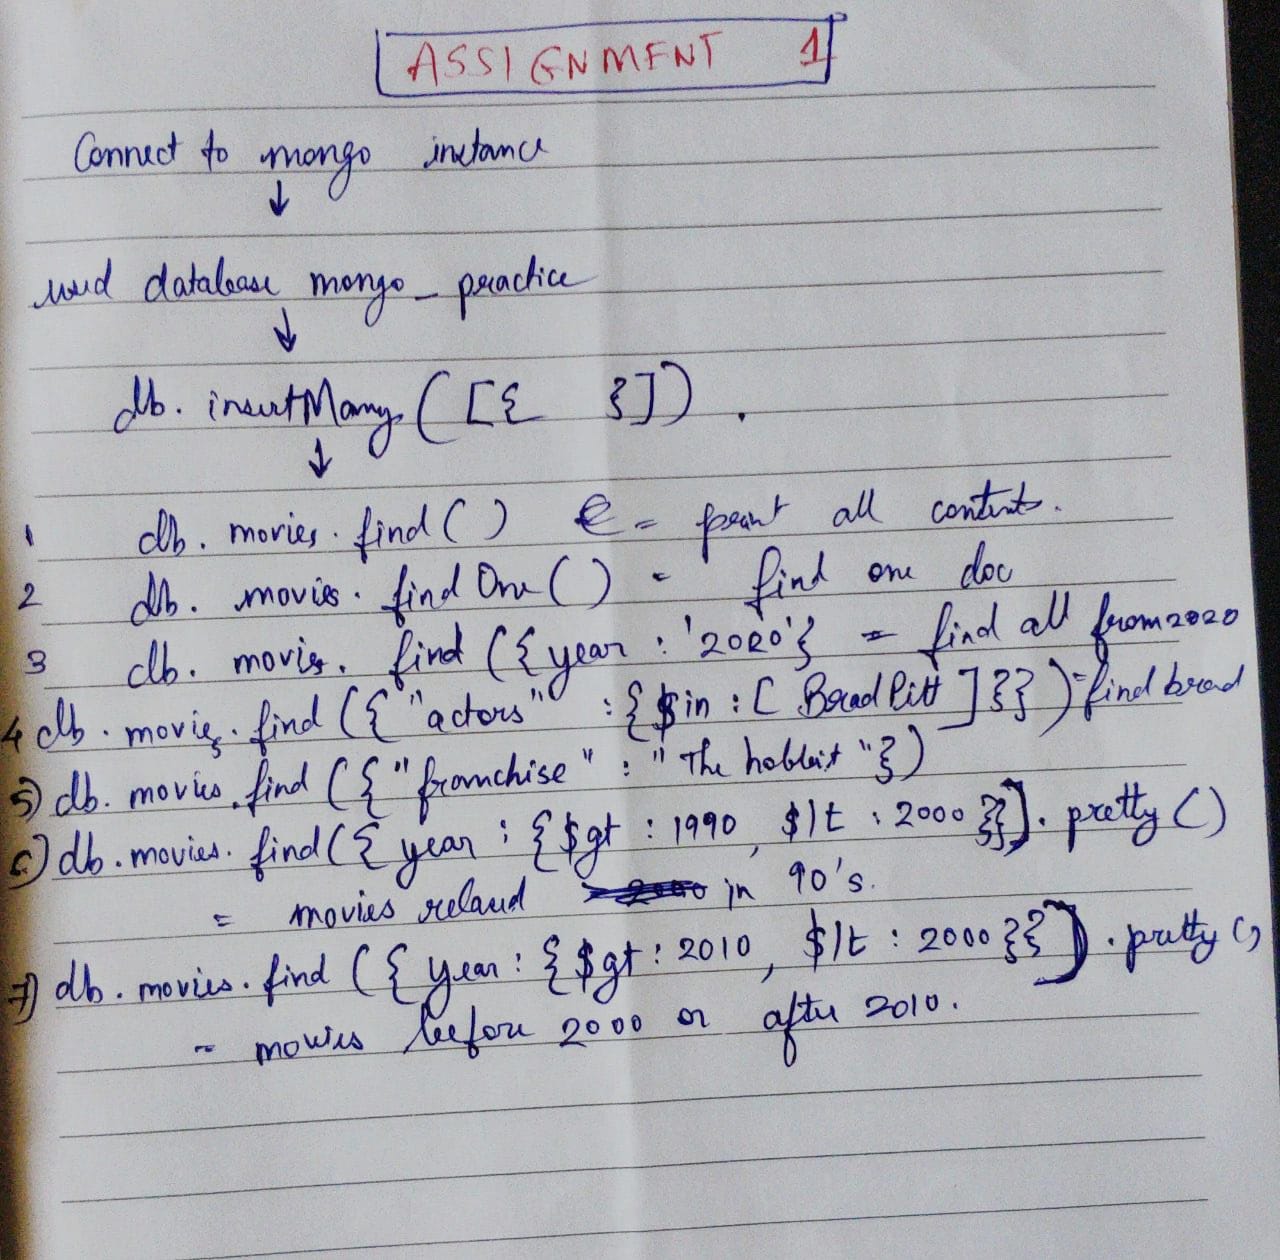 ASSIGNMENT 1
Connect to mongo instance
↓
used database mongo_practice
↓
db. insertMany ([{ }]) .
↓
1 db. movies. find() = print all contents.
2 db. movies. findOne() - find one doc
3 db. movies. find ({year : '2020'} = find all from 2020
4 db. movies. find ({ "actors" : {$in : [ Brad Pitt ] }} ) = find brad
5) db. movies. find ({ "franchise" : " The hobbit "})
6) db. movies. find({ year : {$gt : 1990, $lt : 2000 }}). pretty()
= movies relased in 90's.
7) db. movies. find ({ year : {$gt : 2010, $lt : 2000 }}) . pretty()
- movies before 2000 or after 2010.